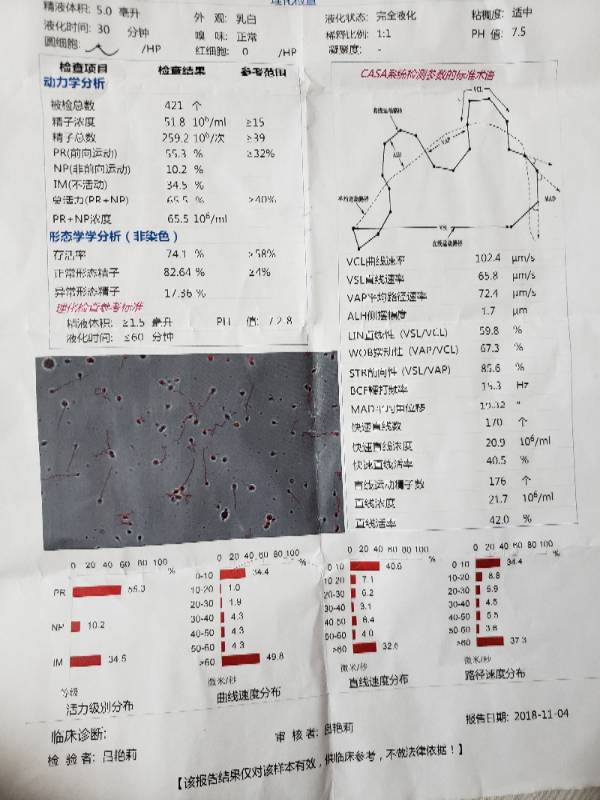 理化检查
精液体积: 5.0 毫升 外 观: 乳白 液化状态: 完全液化 粘稠度: 适中
液化时间: 30 分钟 嗅 味: 正常 稀释比例: 1:1 PH 值: 7.5
圆细胞: /HP 红细胞: 0 /HP 凝聚度: -
检查项目 检查结果 参考范围
动力学分析
被检总数 421 个
精子浓度 51.8 10⁶/ml ≥15
精子总数 259.2 10⁶/次 ≥39
PR(前向运动) 55.3 % ≥32%
NP(非前向运动) 10.2 %
IM(不活动) 34.5 %
总活力(PR+NP) 65.5 % ≥40%
PR+NP浓度 65.5 10⁶/ml
形态学学分析（非染色）
存活率 74.1 % ≥58%
正常形态精子 82.64 % ≥4%
异常形态精子 17.36 %
理化检查参考标准
精液体积: ≥1.5 毫升 PH 值: 7.2.8
液化时间: ≤60 分钟
CASA系统检测参数的标准术语
VCL
曲线运动路径
ALH
VAP
平均运动路径
MAD
VSL
直线运动路径
VCL曲线速率 102.4 μm/s
VSL直线速率 65.8 μm/s
VAP平均路径速率 72.4 μm/s
ALH侧摆幅度 1.7 μm
LIN直线性 (VSL/VCL) 59.8 %
WOB摆动性 (VAP/VCL) 67.3 %
STR前向性 (VSL/VAP) 85.6 %
BCF鞭打频率 15.3 Hz
MAD平均角位移 °
快速直线数 170 个
快速直线浓度 20.9 10⁶/ml
快速直线活率 40.5 %
直线运动精子数 176 个
直线浓度 21.7 10⁶/ml
直线活率 42.0 %
0 20 40 60 80 100 %
PR 55.3
NP 10.2
IM 34.5
等级
活力级别分布
0 20 40 60 80 100 %
0-10 34.4
10-20 1.0
20-30 1.9
30-40 4.3
40-50 4.3
50-60 4.3
>60 49.8
微米/秒
曲线速度分布
0 20 40 60 80 100 %
0-10 40.6
10-20 7.1
20-30 6.2
30-40 3.1
40-50 6.4
50-60 4.0
>60 32.6
微米/秒
直线速度分布
0 20 40 60 80 100 %
0-10 34.4
10-20 8.8
20-30 5.9
30-40 4.5
40-50 5.5
50-60 3.6
>60 37.3
微米/秒
路径速度分布
临床诊断:
检 验 者: 吕艳莉 审 核 者: 吕艳莉 报告日期: 2018-11-04
【该报告结果仅对该样本有效，供临床参考，不做法律依据！】